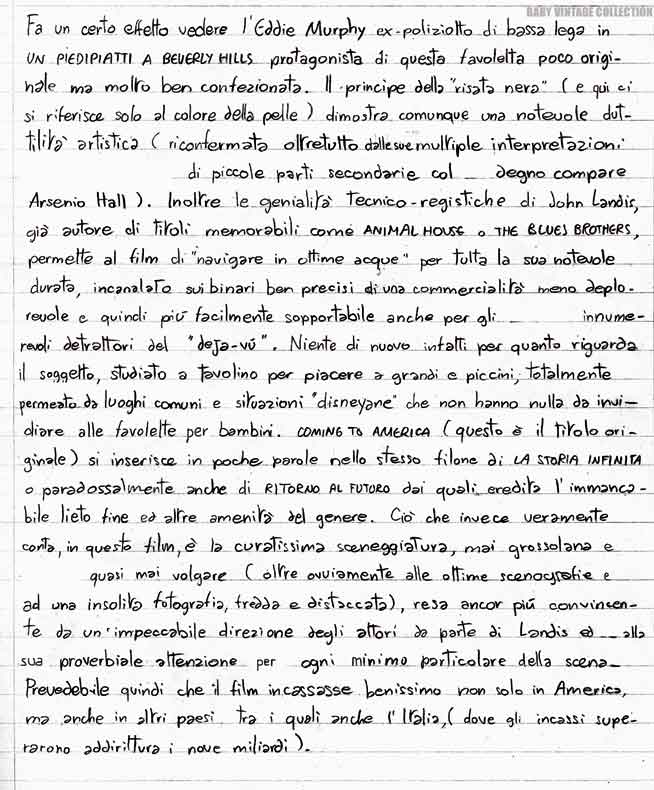 BABY VINTAGE COLLECTION
Fa un certo effetto vedere l'Eddie Murphy ex-poliziotto di bassa lega in
UN PIEDIPIATTI A BEVERLY HILLS protagonista di questa favoletta poco origi-
nale ma molto ben confezionata. Il principe della "risata nera" (e qui ci
si riferisce solo al colore della pelle) dimostra comunque una notevole dut-
tilità artistica (riconfermata oltretutto dalle sue multiple interpretazioni
di piccole parti secondarie col degno compare
Arsenio Hall). Inoltre le genialità tecnico-registiche di John Landis,
già autore di titoli memorabili come ANIMAL HOUSE o THE BLUES BROTHERS,
permette al film di "navigare in ottime acque" per tutta la sua notevole
durata, incanalato sui binari ben precisi di una commercialità meno deplo-
revole e quindi più facilmente sopportabile anche per gli innume-
revoli detrattori del "deja-vú". Niente di nuovo infatti per quanto riguarda
il soggetto, studiato a tavolino per piacere a grandi e piccini, totalmente
permeato da luoghi comuni e situazioni "disneyane" che non hanno nulla da invi-
diare alle favolette per bambini. COMING TO AMERICA (questo è il titolo ori-
ginale) si inserisce in poche parole nello stesso filone di LA STORIA INFINITA
o paradossalmente anche di RITORNO AL FUTURO dai quali eredita l'immanca-
bile lieto fine ed altre amenità del genere. Ciò che invece veramente
conta, in questo film, è la curatissima sceneggiatura, mai grossolana e
quasi mai volgare (oltre ovviamente alle ottime scenografie e
ad una insolita fotografia, fredda e distaccata), resa ancor più convincen-
te da un'impeccabile direzione degli attori da parte di Landis ed alla
sua proverbiale attenzione per ogni minimo particolare della scena.
Prevedibile quindi che il film incassasse benissimo non solo in America,
ma anche in altri paesi tra i quali anche l'Italia, (dove gli incassi supe-
rarono addirittura i nove miliardi).